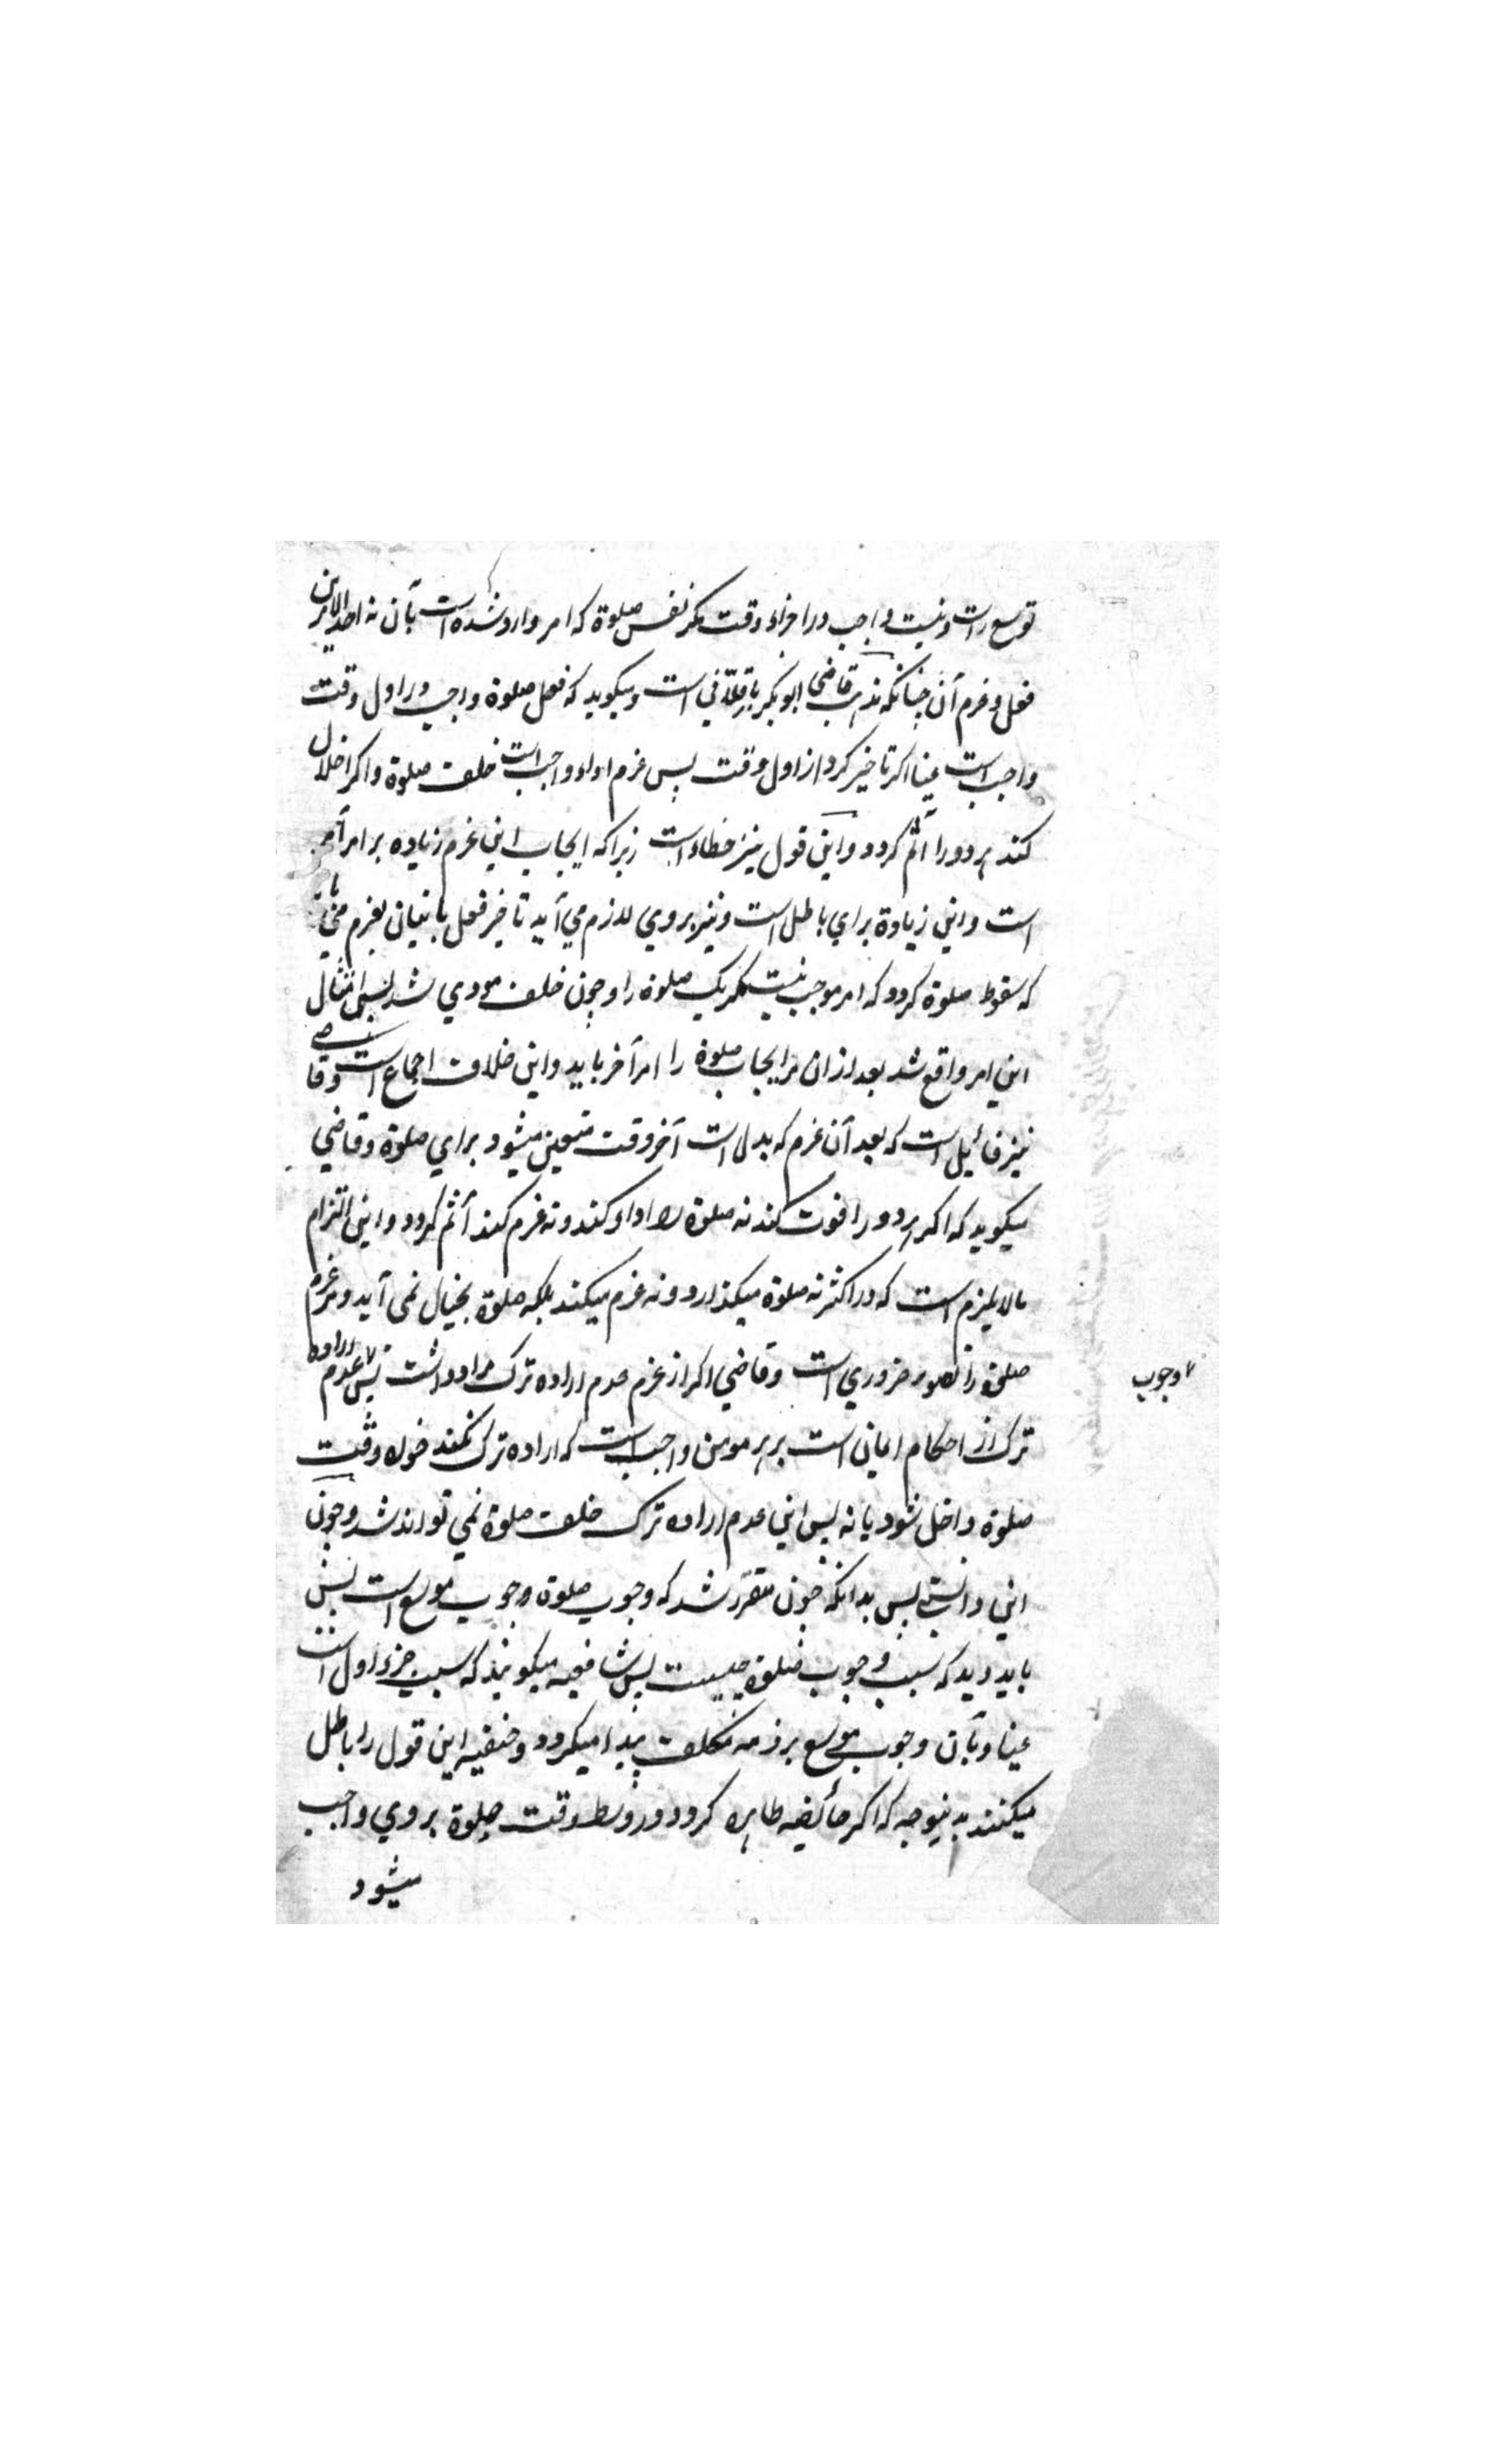 توسع است و نیست واجب در اجزاء وقت مکر نفس صلوة که امر وارد شده است بآن نه احد الامرین
فعل و عزم آن چنانکه مذهب قاضی ابو بکر باقلانی است و میکوید که فعل صلوة واجب در اول وقت
واجب است عینا اکر تاخیر کرد از اول وقت پس عزم اداء واجب است خلف صلوة و اکر اخلال
کند هر دو را آثم کردد و این قول نیز خطاء است زیرا که ایجاب این عزم زیاده بر امر
است و این زیادة برای باطل است و نیز بروی لازم می آید تاخیر فعل با بعزم
که سقوط صلوة کردد که امر موجب نیست مکر یک صلوة را و چون خلف مودی شد پس امتثال
این امر واقع شد بعد از ان مر ایجاب صلوة را امر آخر باید و این خلاف اجماع است و قاضی
نیز قائیل است که بعد آن عزم که بدل است آخر وقت متعین میشود برای صلوة و قاضی
میکوید که اکر هر دو را فوت کند نه صلوة را ادا کند و نه عزم کند آثم کردد و این التزام
مالا یلزم است که در اکثر نه صلوة میکذارد و نه عزم میکند بلکه صلوة بخیال نمی آید و مر عزم
صلوة را تصور ضروری است و قاضی اکر از عزم عدم اراده ترک مراد داشت پس عدم اراده
۷ وجوب
ترک از احکام ایمانی است بر هر مومن واجب است که اراده ترک نکند خواه وقت
صلوة داخل شود یا نه پس این عدم اراده ترک خلف صلوة نمی تواند شد و چون
این دانستی پس بدانکه چون متقرر شد که وجوب صلوة وجوب موسع است پس
باید دید که سبب وجوب صلوة چیست پس شافعیه میکویند که سبب جزء اول است
عینا و بآن وجوب موسع بر ذمه مکلف پیدا میکردد و حنفیه این قول را باطل
میکنند به نیوجه که اکر حائضه طاهره کردد در وسط وقت صلوة بروی واجب
میشود